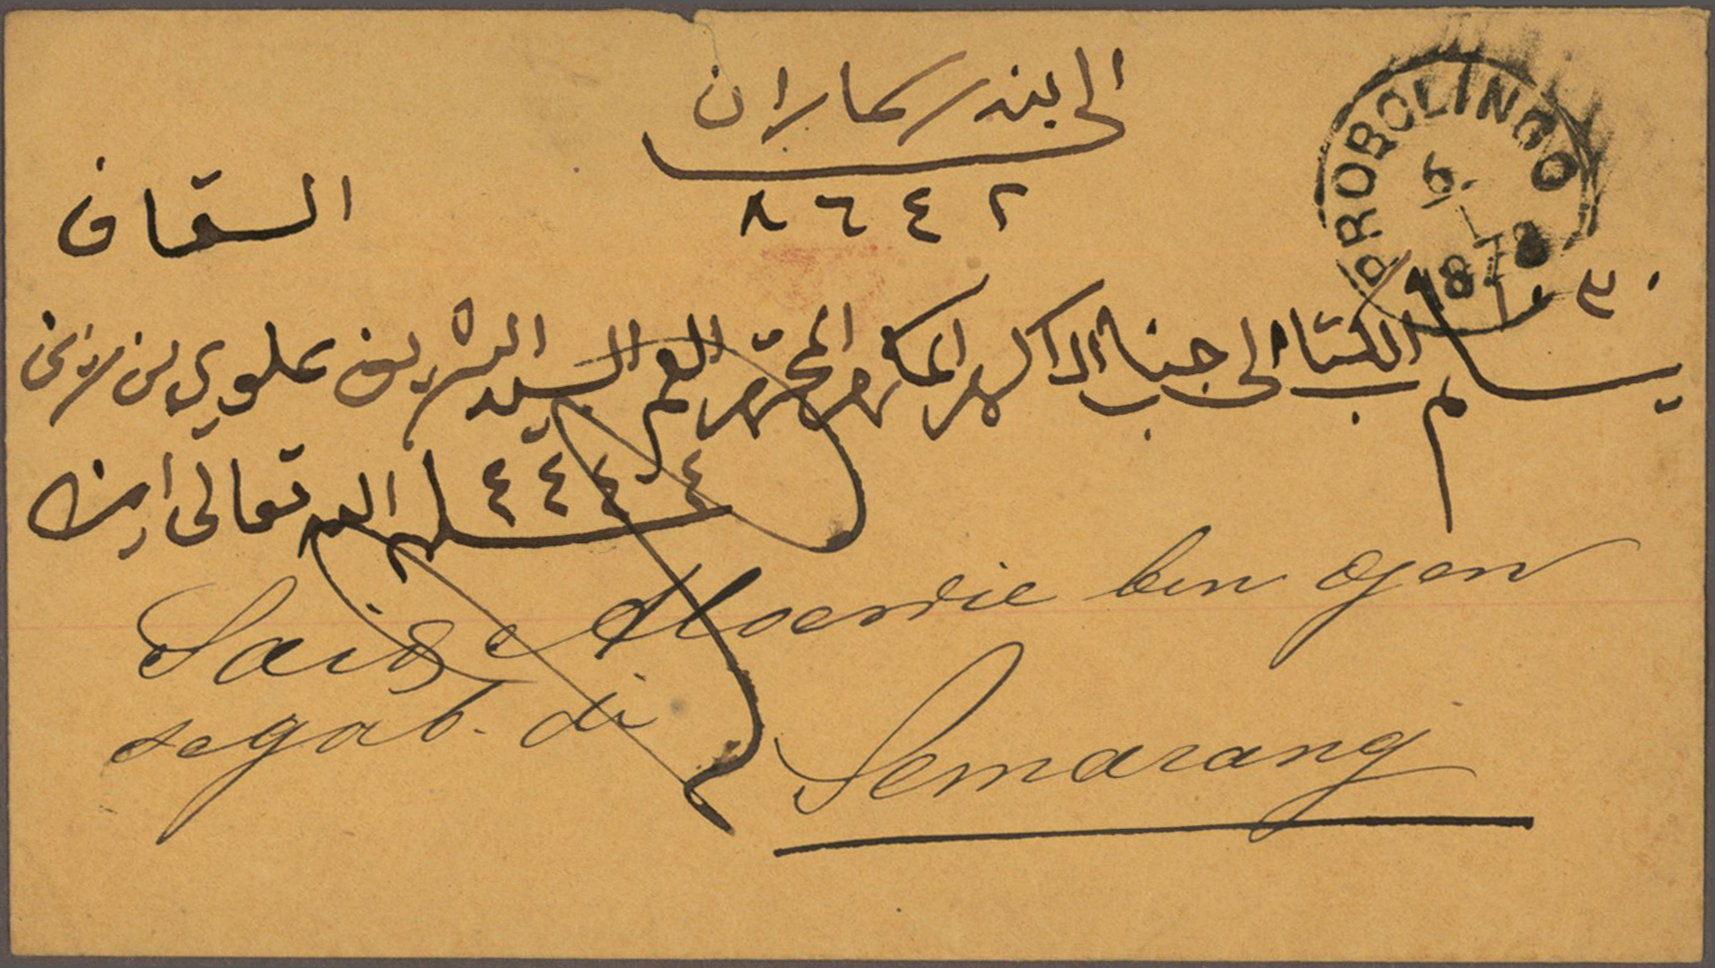 الى بندر سماران
PROBOLINGO
6
1
1878
٨٦٤٢
السقاف
يسلم الكتاب الى جناب الاكرم المكرم المحترم العم السيد الشريف علوي بن زين
سلمه الله تعالى امين
Said Aloewie ben Ojen
segab. di
Semarang